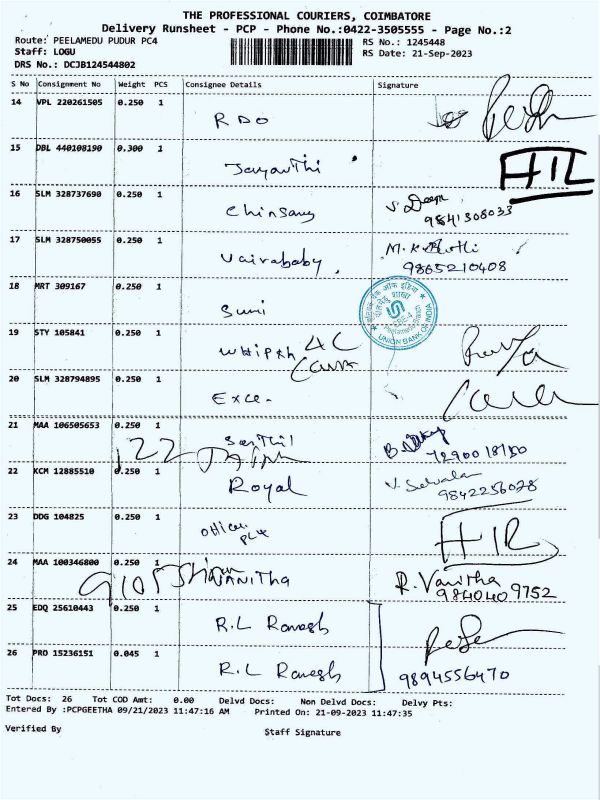 THE PROFESSIONAL COURIERS, COIMBATORE
Delivery Runsheet - PCP - Phone No.:0422-3505555 - Page No.:2
Route: PEELAMEDU PUDUR PC4
RS No.: 1245448
Staff: LOGU
RS Date: 21-Sep-2023
DRS No.: DCJB124544802
S No Consignment No Weight PCS Consignee Details Signature
14 VPL 220261505 0.250 1 RDO
15 DBL 440108190 0.300 1 Jayanthi HIL
16 SLM 328737690 0.250 1 Chinsang
9841308033
17 SLM 328750055 0.250 1 Vairababy
9865210408
18 MRT 309167 0.250 1 Suni
UNION BANK OF INDIA
19 STY 105841 0.250 1
20 SLM 328794895 0.250 1 Exce.
21 MAA 106505653 0.250 1 Senthil
22 KCM 12885510 0.250 1 Royal
9842256028
23 DDG 104825 0.250 1 HIL
24 MAA 100346800 0.250 1 VANITHA R. Vanitha
9840409752
25 EDQ 25610443 0.250 1 R.L Ramesh
26 PRO 15236151 0.045 1 R.L Ramesh 9894556470
Tot Docs: 26 Tot COD Amt: 0.00 Delvd Docs: Non Delvd Docs: Delvy Pts:
Entered By :PCPGEETHA 09/21/2023 11:47:16 AM Printed On: 21-09-2023 11:47:35
Verified By Staff Signature